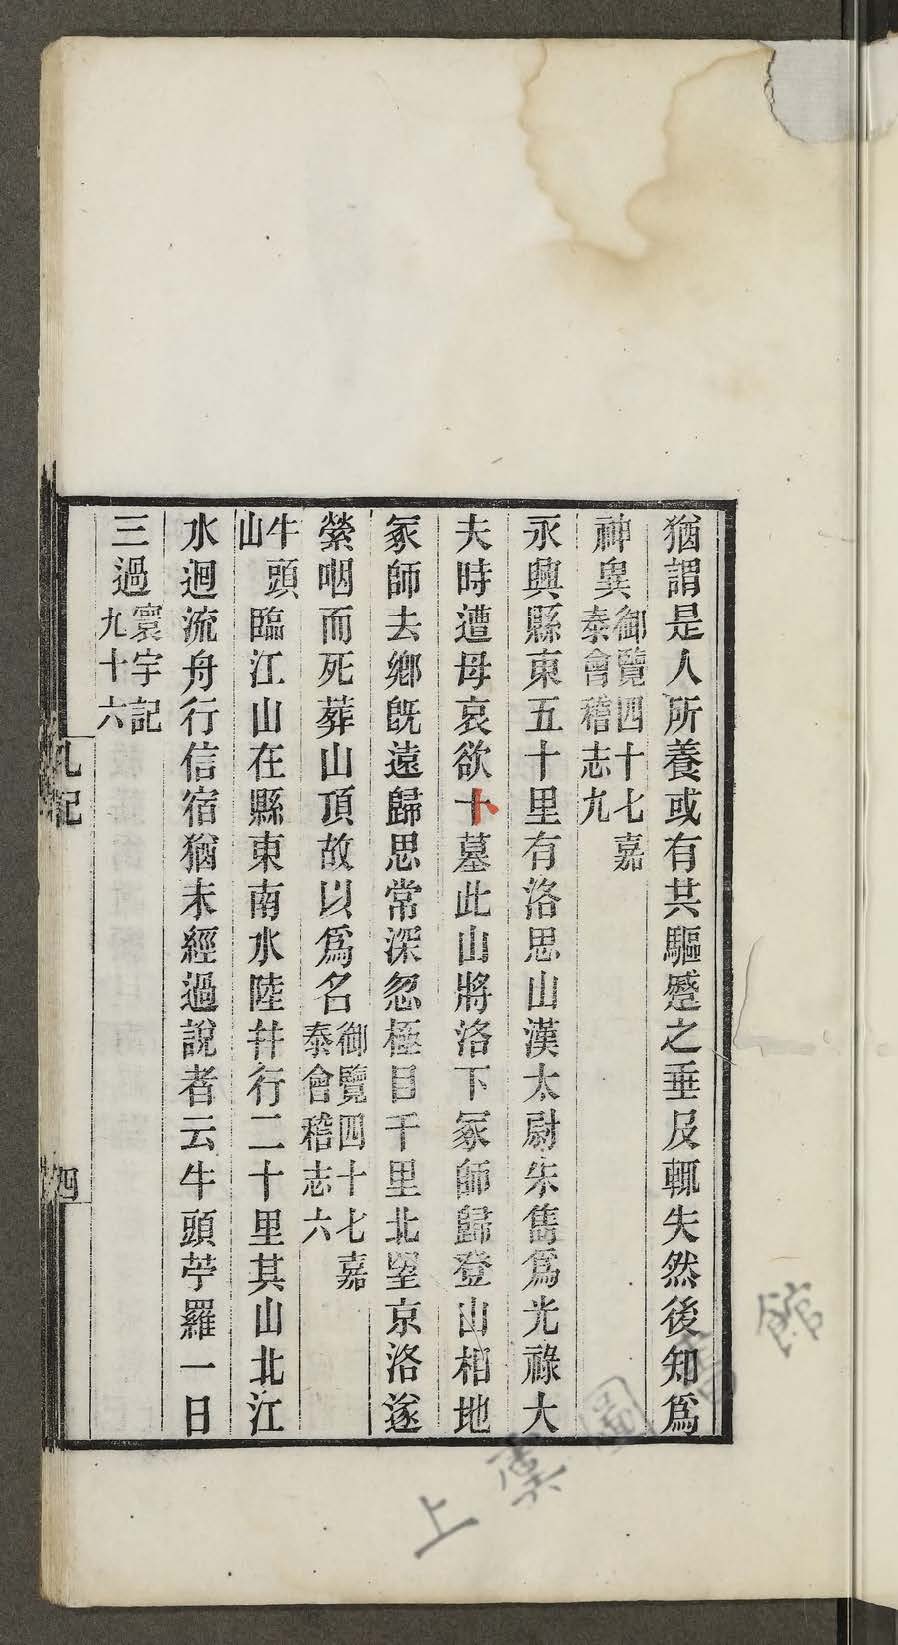 猶謂是人所養或有共驅蹙之垂及輒失然後知爲
神異御覽四十七嘉
泰會稽志九
永興縣東五十里有洛思山漢太尉朱雋爲光祿大
夫時遭母哀欲卜墓此山將洛下冢師歸登山相地
冢師去鄉旣遠歸思常深忽極目千里北望京洛遂
縈咽而死葬山頂故以爲名御覽四十七嘉
泰會稽志六
牛頭
山臨江山在縣東南水陸幷行二十里其山北江
水迴流舟行信宿猶未經過說者云牛頭苧羅一日
三過寰宇記
九十六
札記
四
上虞圖書館